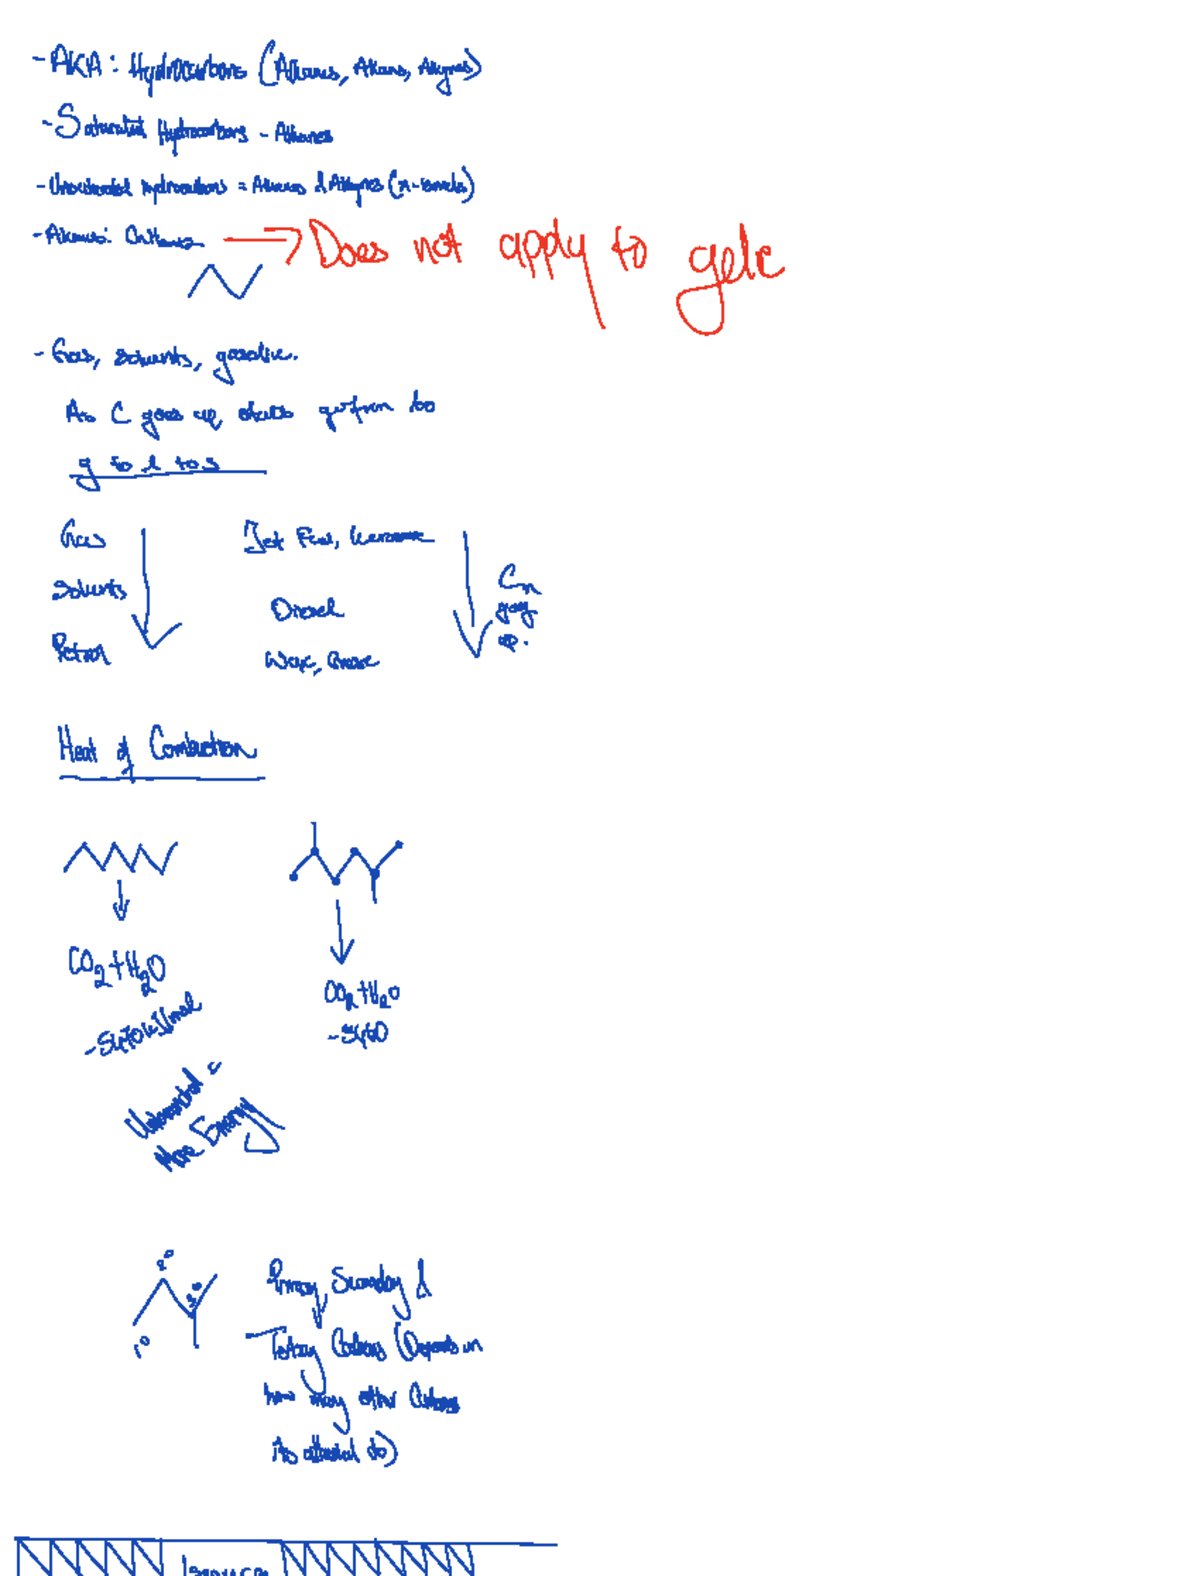 - AKA: Hydrocarbons (Alkanes, Alkenes, Alkynes)
- Saturated Hydrocarbons - Alkanes
- Unsaturated hydrocarbons = Alkenes & Alkynes (π-bonds)
- Alkanes: Criteria → Does not apply to
- Gas, Solvents, gasoline.
As C goes up, states go from to
g to l to s
Gas
Solvents
Petrol
Jet Fuel, Kerosene
Diesel
Wax, Grease
Cn
going
up.
Heat of Combustion
CO2+H2O
-5470 kJ/mol
CO2+H2O
-5460
Unbranched =
More Energy
1°
2°
3°
Primary Secondary &
Tertiary Carbons (Depends on
how many other Carbons
its attached to)